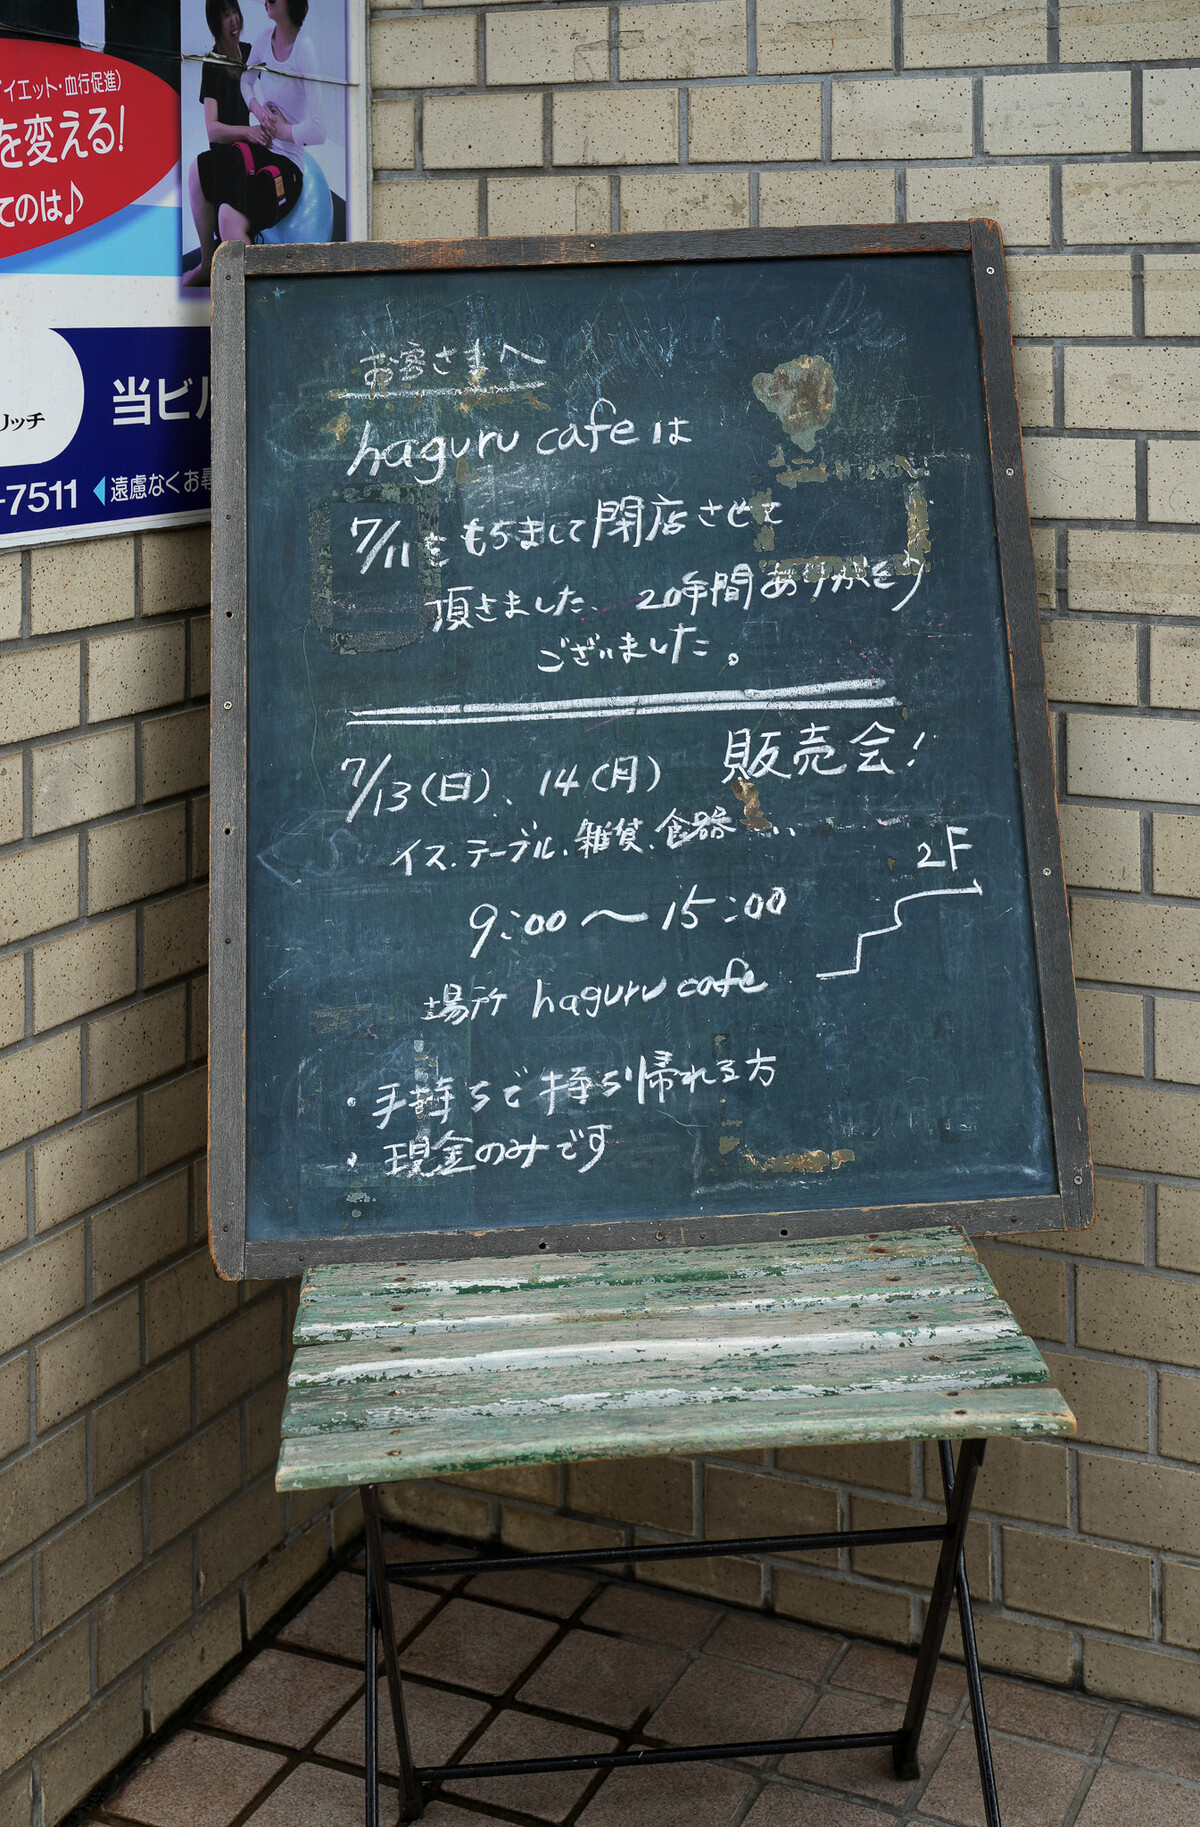 イエット・血行促進)
を変える!
てのは♪
リッチ
当ビル
-7511 ◀遠慮なくお尋
お客さまへ
haguru cafe は
7/11をもちまして閉店させて
頂きました、20年間ありがとう
ございました。
7/13(日)、14(月) 販売会!
イス、テーブル、雑貨、食器...
2F
9:00〜15:00
場所 haguru cafe
・手持ちで持ち帰れる方
・現金のみです